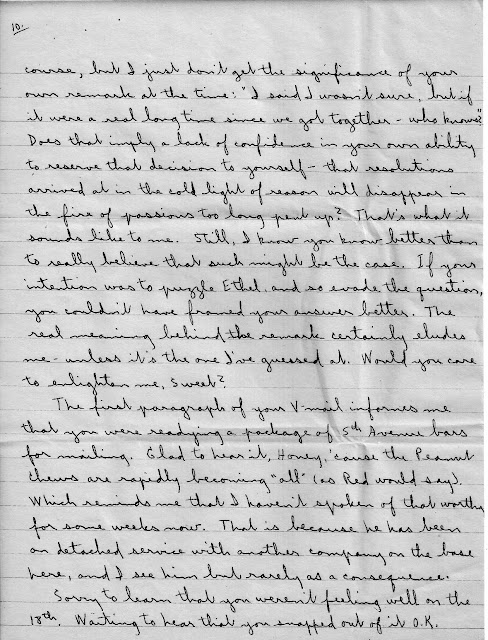 10.
course, but I just don't get the significance of your
own remark at the time: "I said I wasn't sure, but if
it were a real long time since we got together - who knows?"
Does that imply a lack of confidence in your own ability
to reserve that decision to yourself - that resolutions
arrived at in the cold light of reason will disappear in
the fire of passions too long pent up? That's what it
sounds like to me. Still, I know you know better than
to really believe that such might be the case. If your
intention was to puzzle Ethel, and so evade the question,
you couldn't have framed your answer better. The
real meaning behind the remark certainly eludes
me - unless it's the one I've guessed at. Would you care
to enlighten me, Sweet?
The first paragraph of your V-mail informes me
that you were readying a package of 5th Avenue bars
for mailing. Glad to hear it, Honey, 'cause the Peanut
Chews are rapidly becoming "all" (as Red would say).
Which reminds me that I haven't spoken of that worthy
for some weeks now. That is because he has been
on detached service with another company on the base
here, and I see him but rarely as a consequence.
Sorry to learn that you weren't feeling well on the
18th. Waiting to hear that you snapped out of it O.K.